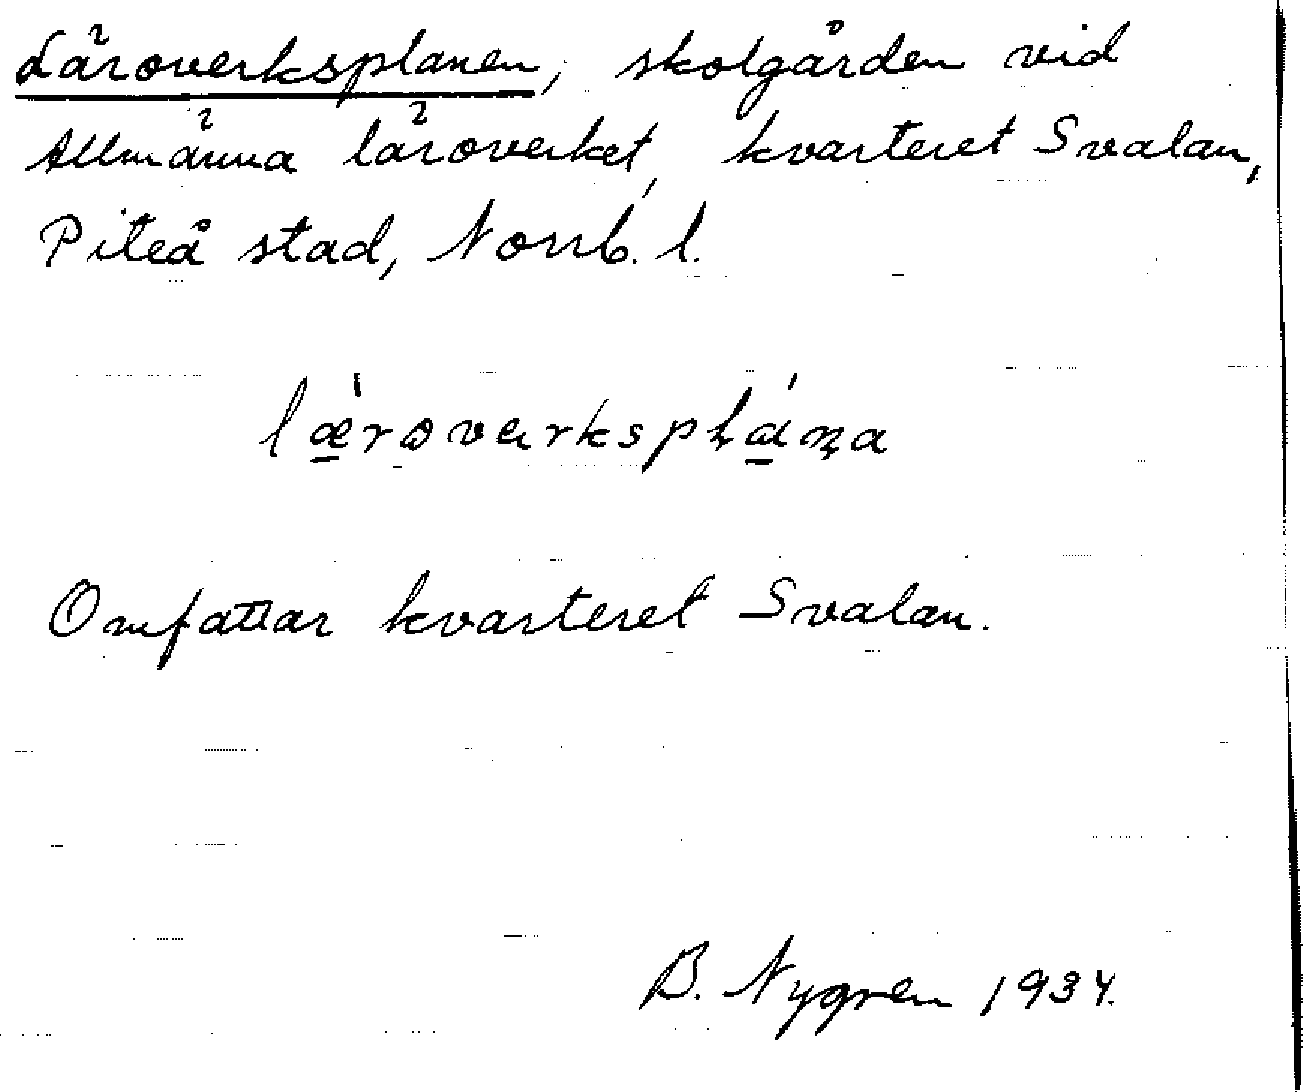 Läroverksplanen, skolgården vid
Allmänna läroverket, kvarteret Svalan,
Piteå stad, Norrb. l.
Omfattar kvarteret Svalan.
B. Nygren 1934.